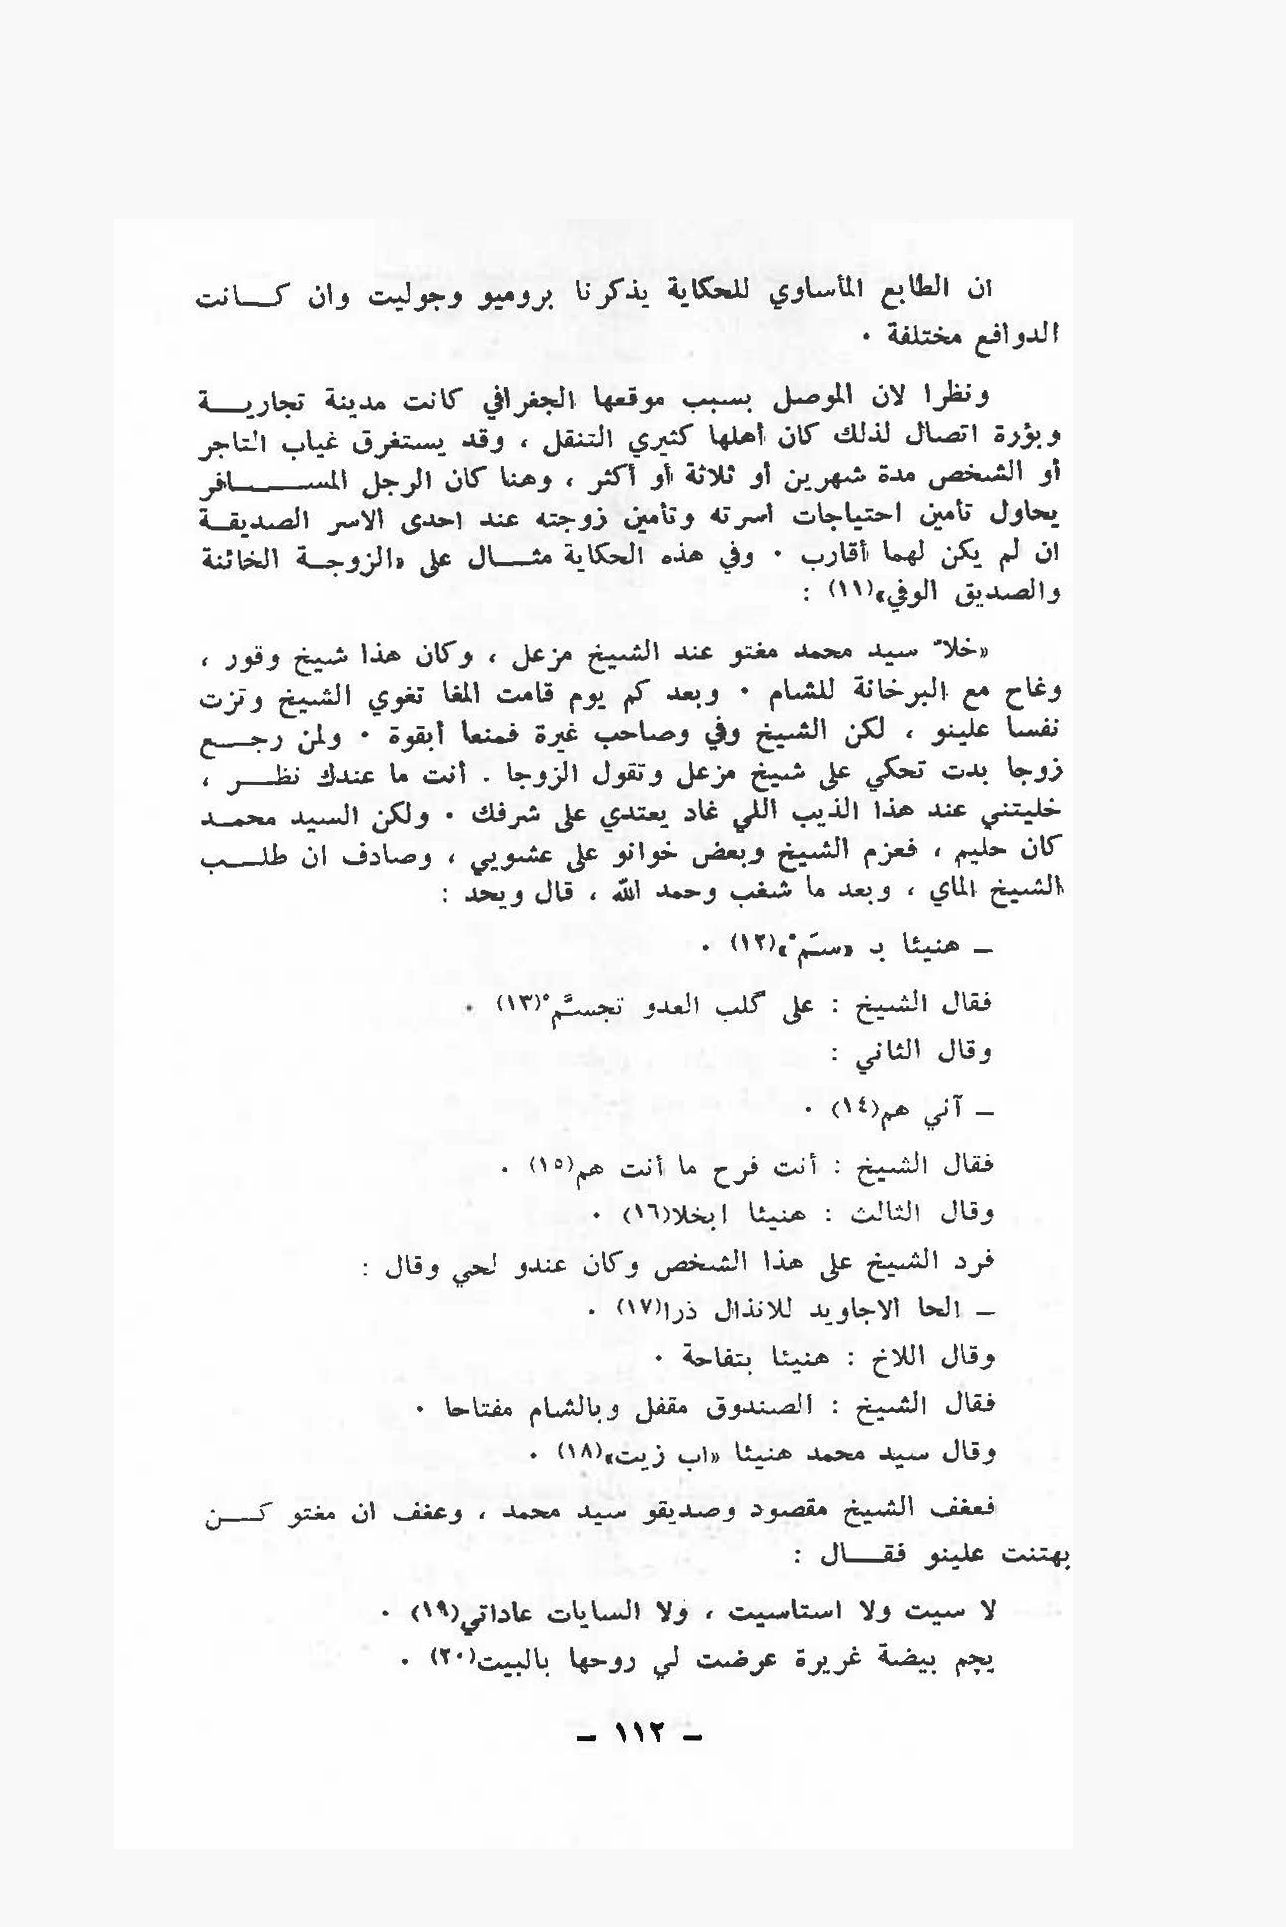 ان الطابع المأساوي للحكاية يذكرنا بروميو وجوليت وان كـــانت
الدوافع مختلفة ٠
ونظرا لان الموصل بسبب موقعها الجغرافي كانت مدينة تجاريـــة
وبؤرة اتصال لذلك كان أهلها كثيري التنقل ، وقد يستغرق غياب التاجر
أو الشخص مدة شهرين أو ثلاثة أو أكثر ، وهنا كان الرجل المســــافر
يحاول تأمين احتياجات اسرته وتأمين زوجته عند احدى الاسر الصديقــة
ان لم يكن لهما أقارب ٠ وفي هذه الحكاية مثـــال على «الزوجــة الخائنة
والصديق الوفي»(١١) :
«خلاّ سيد محمد مغتو عند الشيخ مزعل ، وكان هذا شيخ وقور ،
وغاح مع البرخانة للشام ٠ وبعد كم يوم قامت المغا تغوي الشيخ وتزت
نفسا علينو ، لكن الشيخ وفي وصاحب غيرة فمنعا أبقوة ٠ ولمن رجـــع
زوجا بدت تحكي على شيخ مزعل وتقول الزوجا . أنت ما عندك نظـــر ،
خليتني عند هذا الذيب اللي غاد يعتدي على شرفك ٠ ولكن السيد محمــد
كان حليم ، فعزم الشيخ وبعض خوانو على عشويي ، وصادف ان طلـــب
الشيخ الماي ، وبعد ما شغب وحمد الله ، قال ويحد :
ـ هنيئا بـ «سَمْ»(١٢) ٠
فقال الشيخ : على گلب العدو تجسَّمْ(١٣) ٠
وقال الثاني :
ـ آني هم(١٤) ٠
فقال الشيخ : أنت فرح ما أنت هم(١٥) ٠
وقال الثالث : هنيئا ابخلا(١٦) ٠
فرد الشيخ على هذا الشخص وكان عندو لحي وقال :
ـ الحا الاجاويد للانذال ذرا(١٧) ٠
وقال اللاخ : هنيئا بتفاحة ٠
فقال الشيخ : الصندوق مقفل وبالشام مفتاحا ٠
وقال سيد محمد هنيئا «اب زيت»(١٨) ٠
فعغف الشيخ مقصود وصديقو سيد محمد ، وعغف ان مغتو كـــن
بهتنت علينو فقـــال :
لا سيت ولا استاسيت ، ولا السايات عاداتي(١٩) ٠
يچم بيضة غريرة عرضت لي روحها بالبيت(٢٠) ٠
ـ ١١٢ ـ